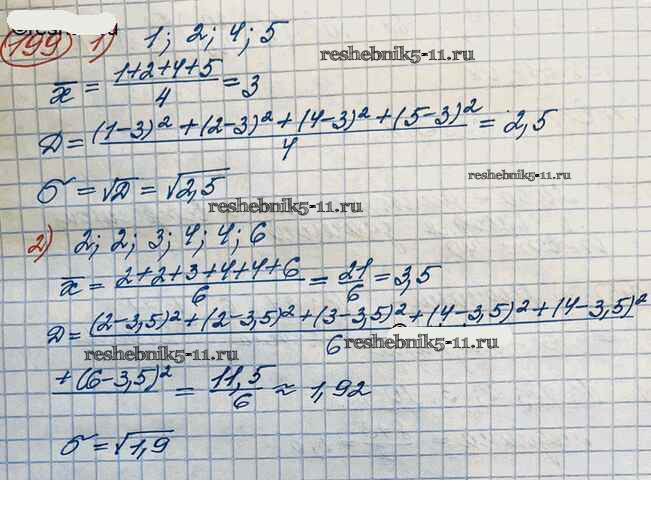 199 1) 1; 2; 4; 5
reshebnik5-11.ru
x̄ = (1+2+4+5)/4 = 3
D = ((1-3)² + (2-3)² + (4-3)² + (5-3)²)/4 = 2,5
reshebnik5-11.ru
σ = √D = √2,5
reshebnik5-11.ru
2) 2; 2; 3; 4; 4; 6
x̄ = (2+2+3+4+4+6)/6 = 21/6 = 3,5
D = (2-3,5)² + (2-3,5)² + (3-3,5)² + (4-3,5)² + (4-3,5)²
6
reshebnik5-11.ru reshebnik5-11.ru
+ (6-3,5)² = 11,5/6 ≈ 1,92
σ = √1,9